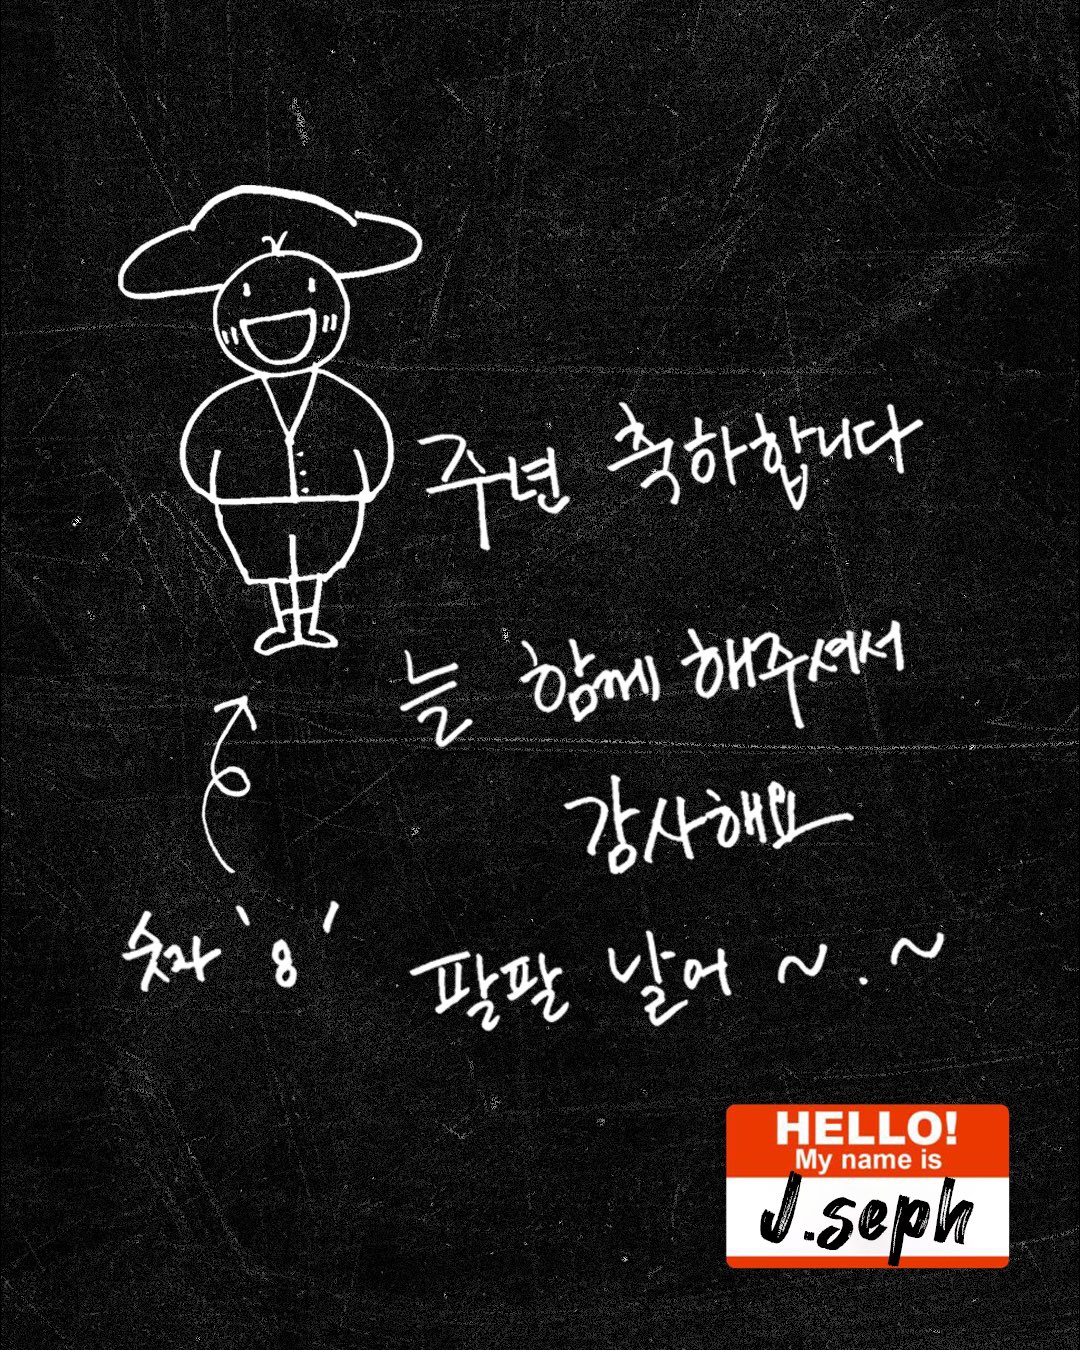 주년 축하합니다
늘 함께 해주셔서
감사해요
숫자 '8'
팔팔 날어 ~.~
HELLO!
My name is
J.seph